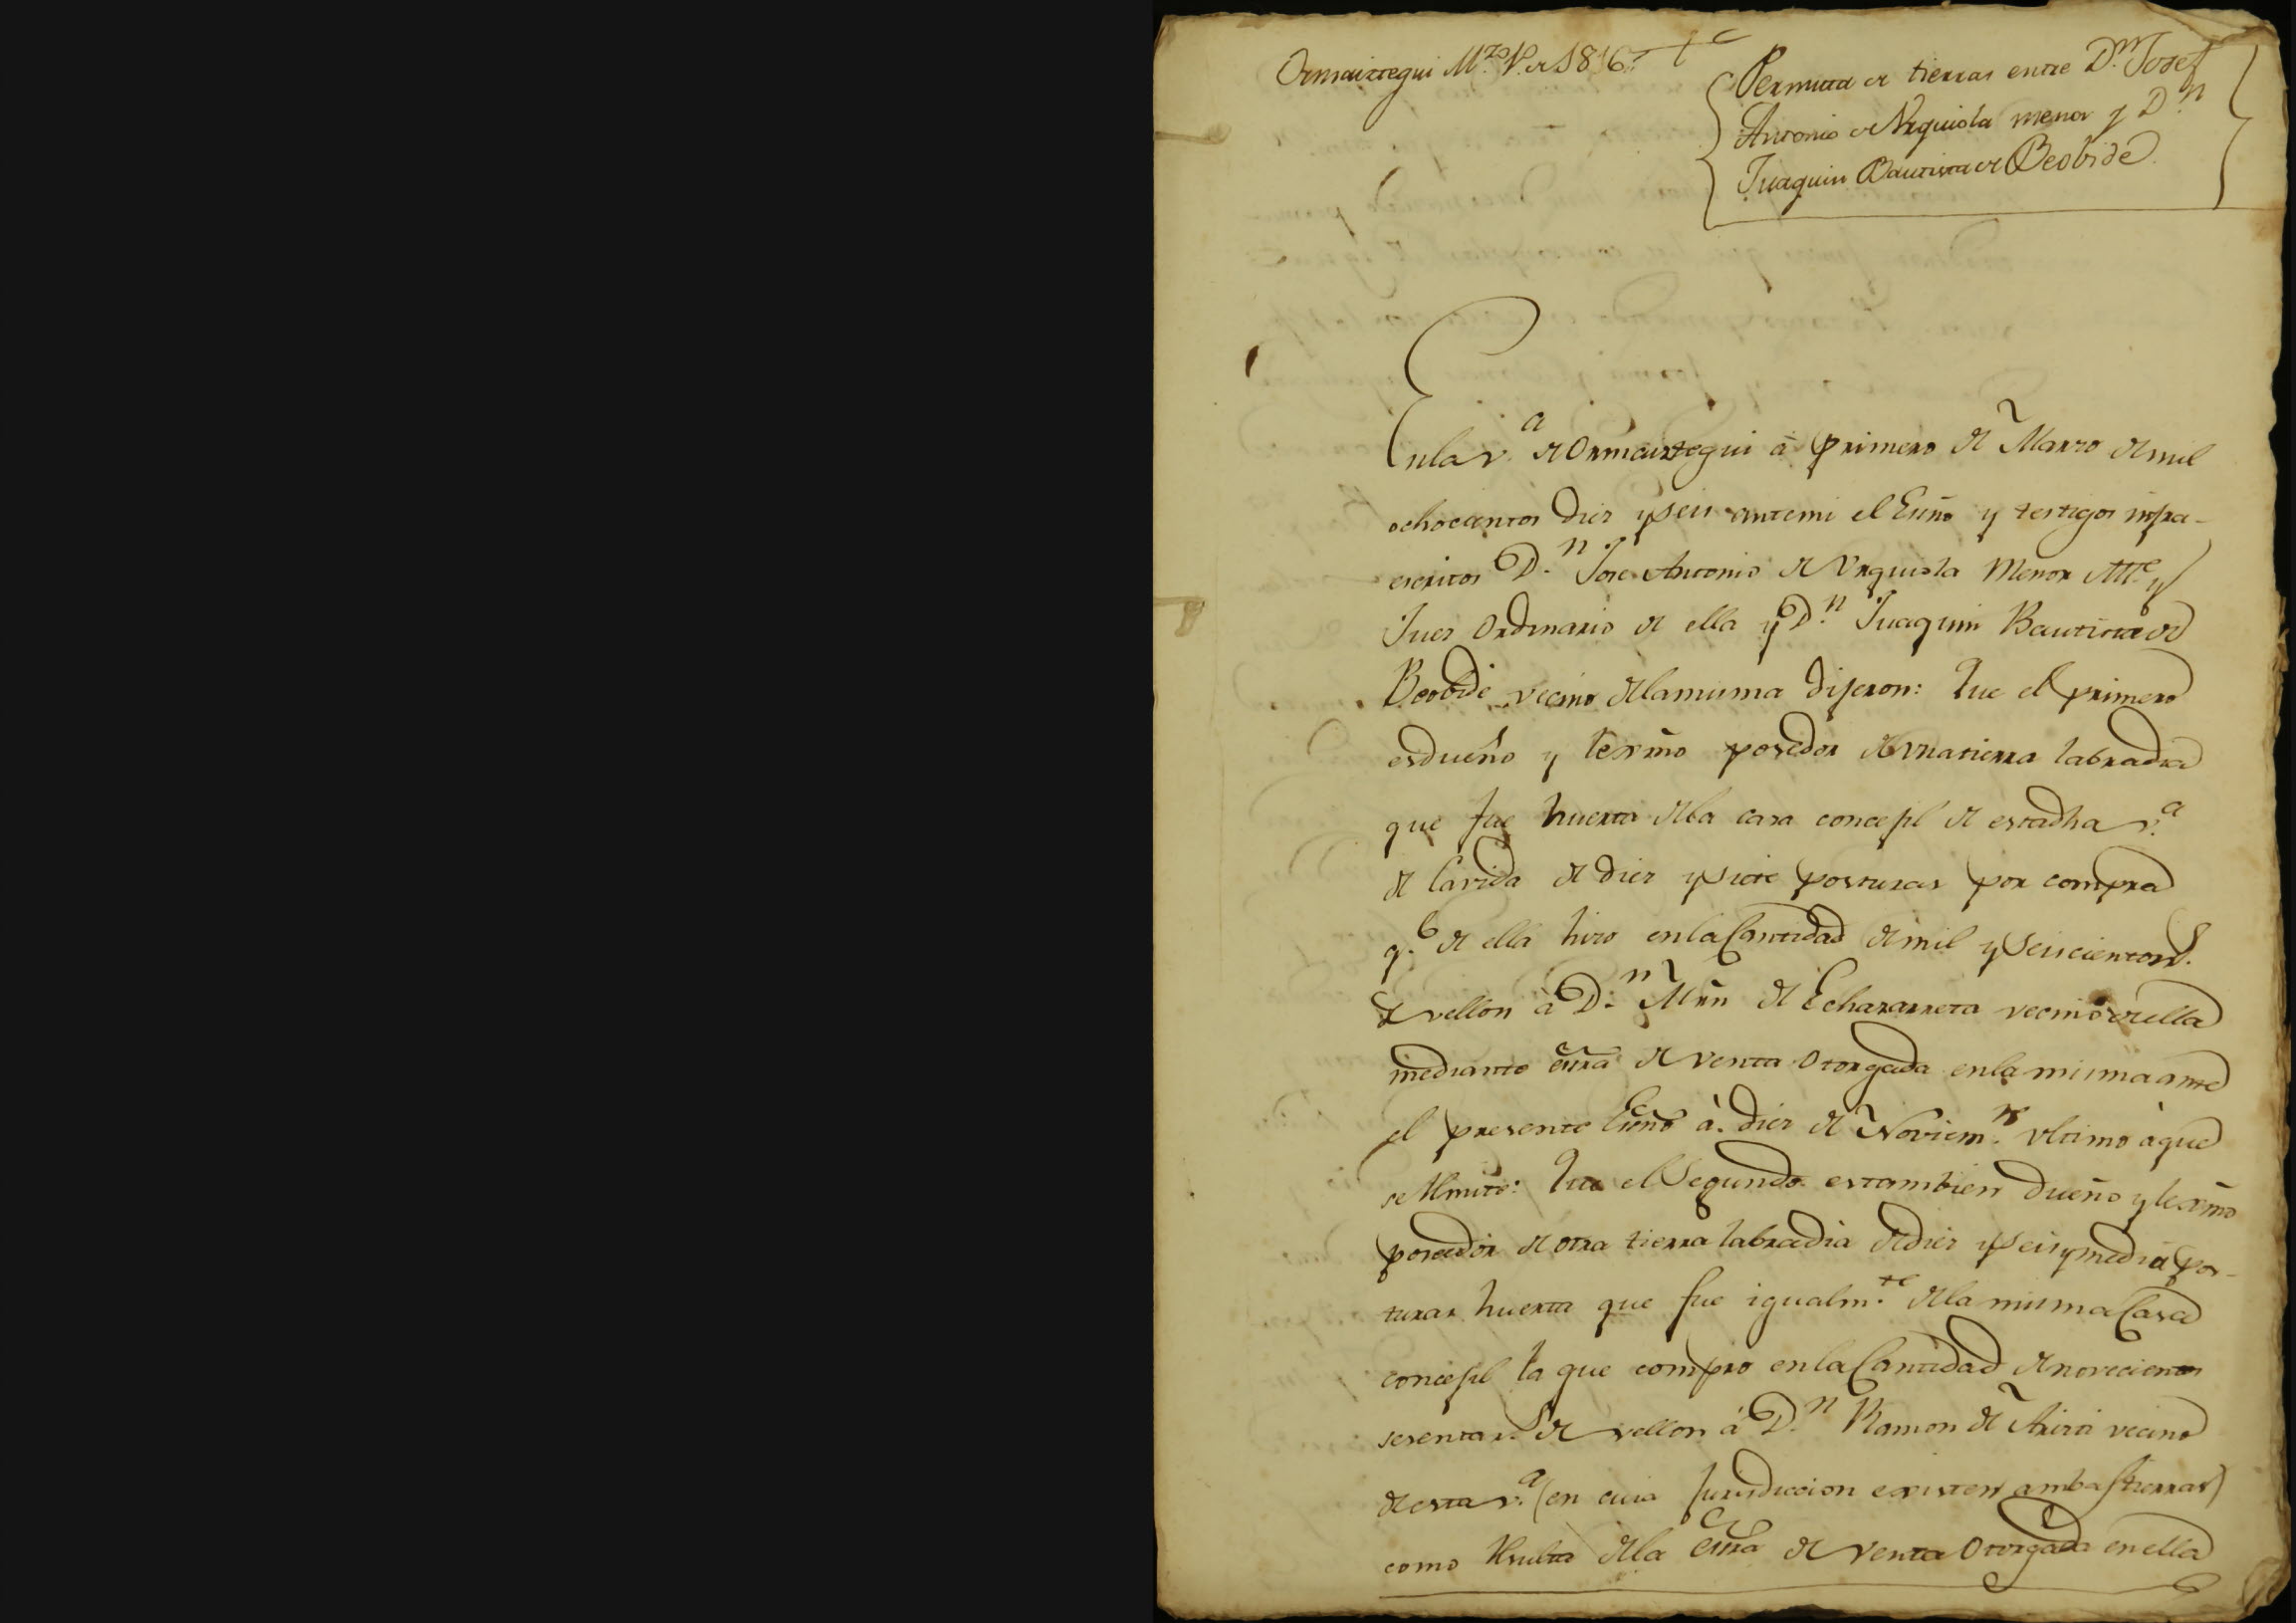 Ormaiztegui M.zo 1.º de 1816
Permuta de tierras entre D.n Josef
Antonio de Urquiola menor y D.n
Juaquin Bautista de Beobide
En la v.a de Ormaiztegui à primero de Marzo de mil
ochocientos diez y seis ante mi el Esno y testigos infra-
escritos D.n Jose Antonio de Urquiola Menor Alle y
Juez Ordinario de ella y D.n Juaquin Bautista de
Beobide vecino de la misma dijeron: Que el primero
es dueño y lexmo posedor de una tierra labradia
que fue huerta de la casa concejil de esta dha v.a
de Cavida de diez y siete posturas por compra
q.e de ella hizo en la Cantidad de mil y seiscientos r.s
de vellon à D.n Mrn de Echazarreta vecino de ella
mediante esra de venta otorgada en la misma ante
el presente Esno à diez de Noviem.re ultimo à que
se Rmite: Que el Segundo es tambien dueño y lexmo
poseedor de otra tierra labradia de diez y seis y media pos-
turas huerta que fue igualm.te de la misma Casa
concejil la que compro en la Cantidad de novecientos
sesenta r.s de vellon à D.n Ramon de Arizti vecino
de esta v.a (en cuia Jurisdiccion existen ambas tierras)
como Resulta de la esra de venta Otorgada en ella